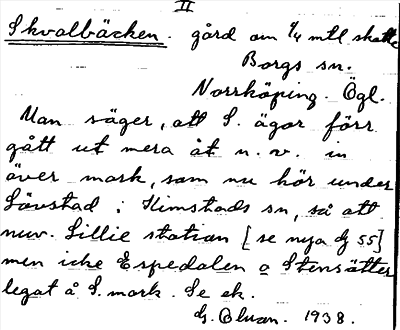 II
Skvalbäcken. gård om 1/4 mtl skatte
Borgs sn.
Norrköping. Ögl.
Man säger, att S. ägor förr
gått ut mera åt n.v. in
över mark, som nu hör under
Lövstad i Kimstads sn, så att
nuv. Lillie station [se nya dj 55]
men icke Espedalen o Stensätter
legat å S. mark. Se ek.
1938.